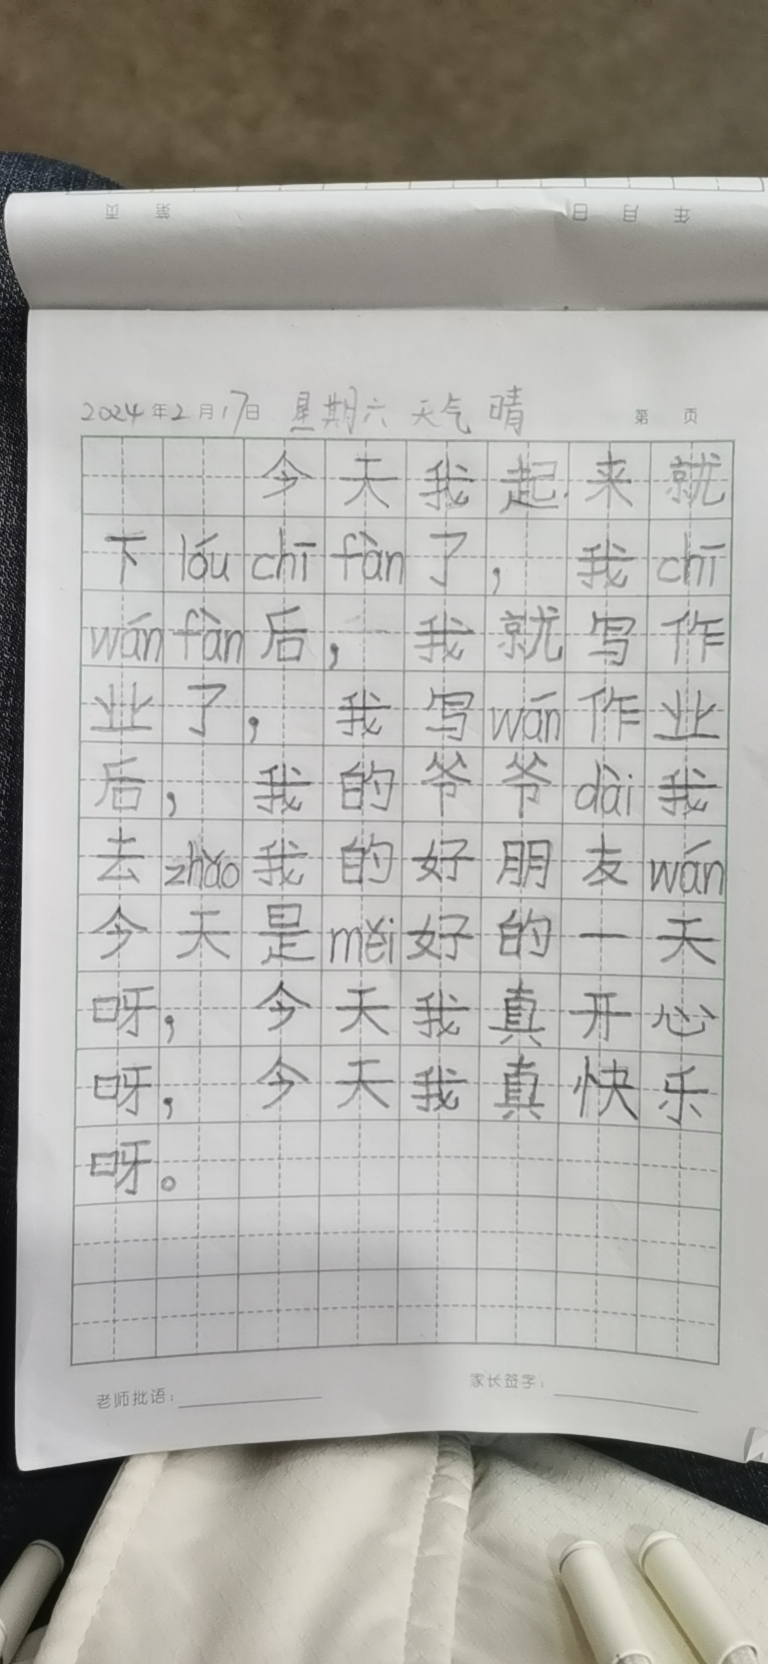 第 页 年 月 日
2024年2月17日 星期六 天气 晴 第 页
今天我起来就
下lóu chī fàn了，我chī
wán fàn后，我就写作
业了，我写wán作业
后，我的爷爷dài我
去zhǎo我的好朋友wán
今天是měi好的一天
呀，今天我真开心
呀，今天我真快乐
呀。
老师批语： 家长签字：